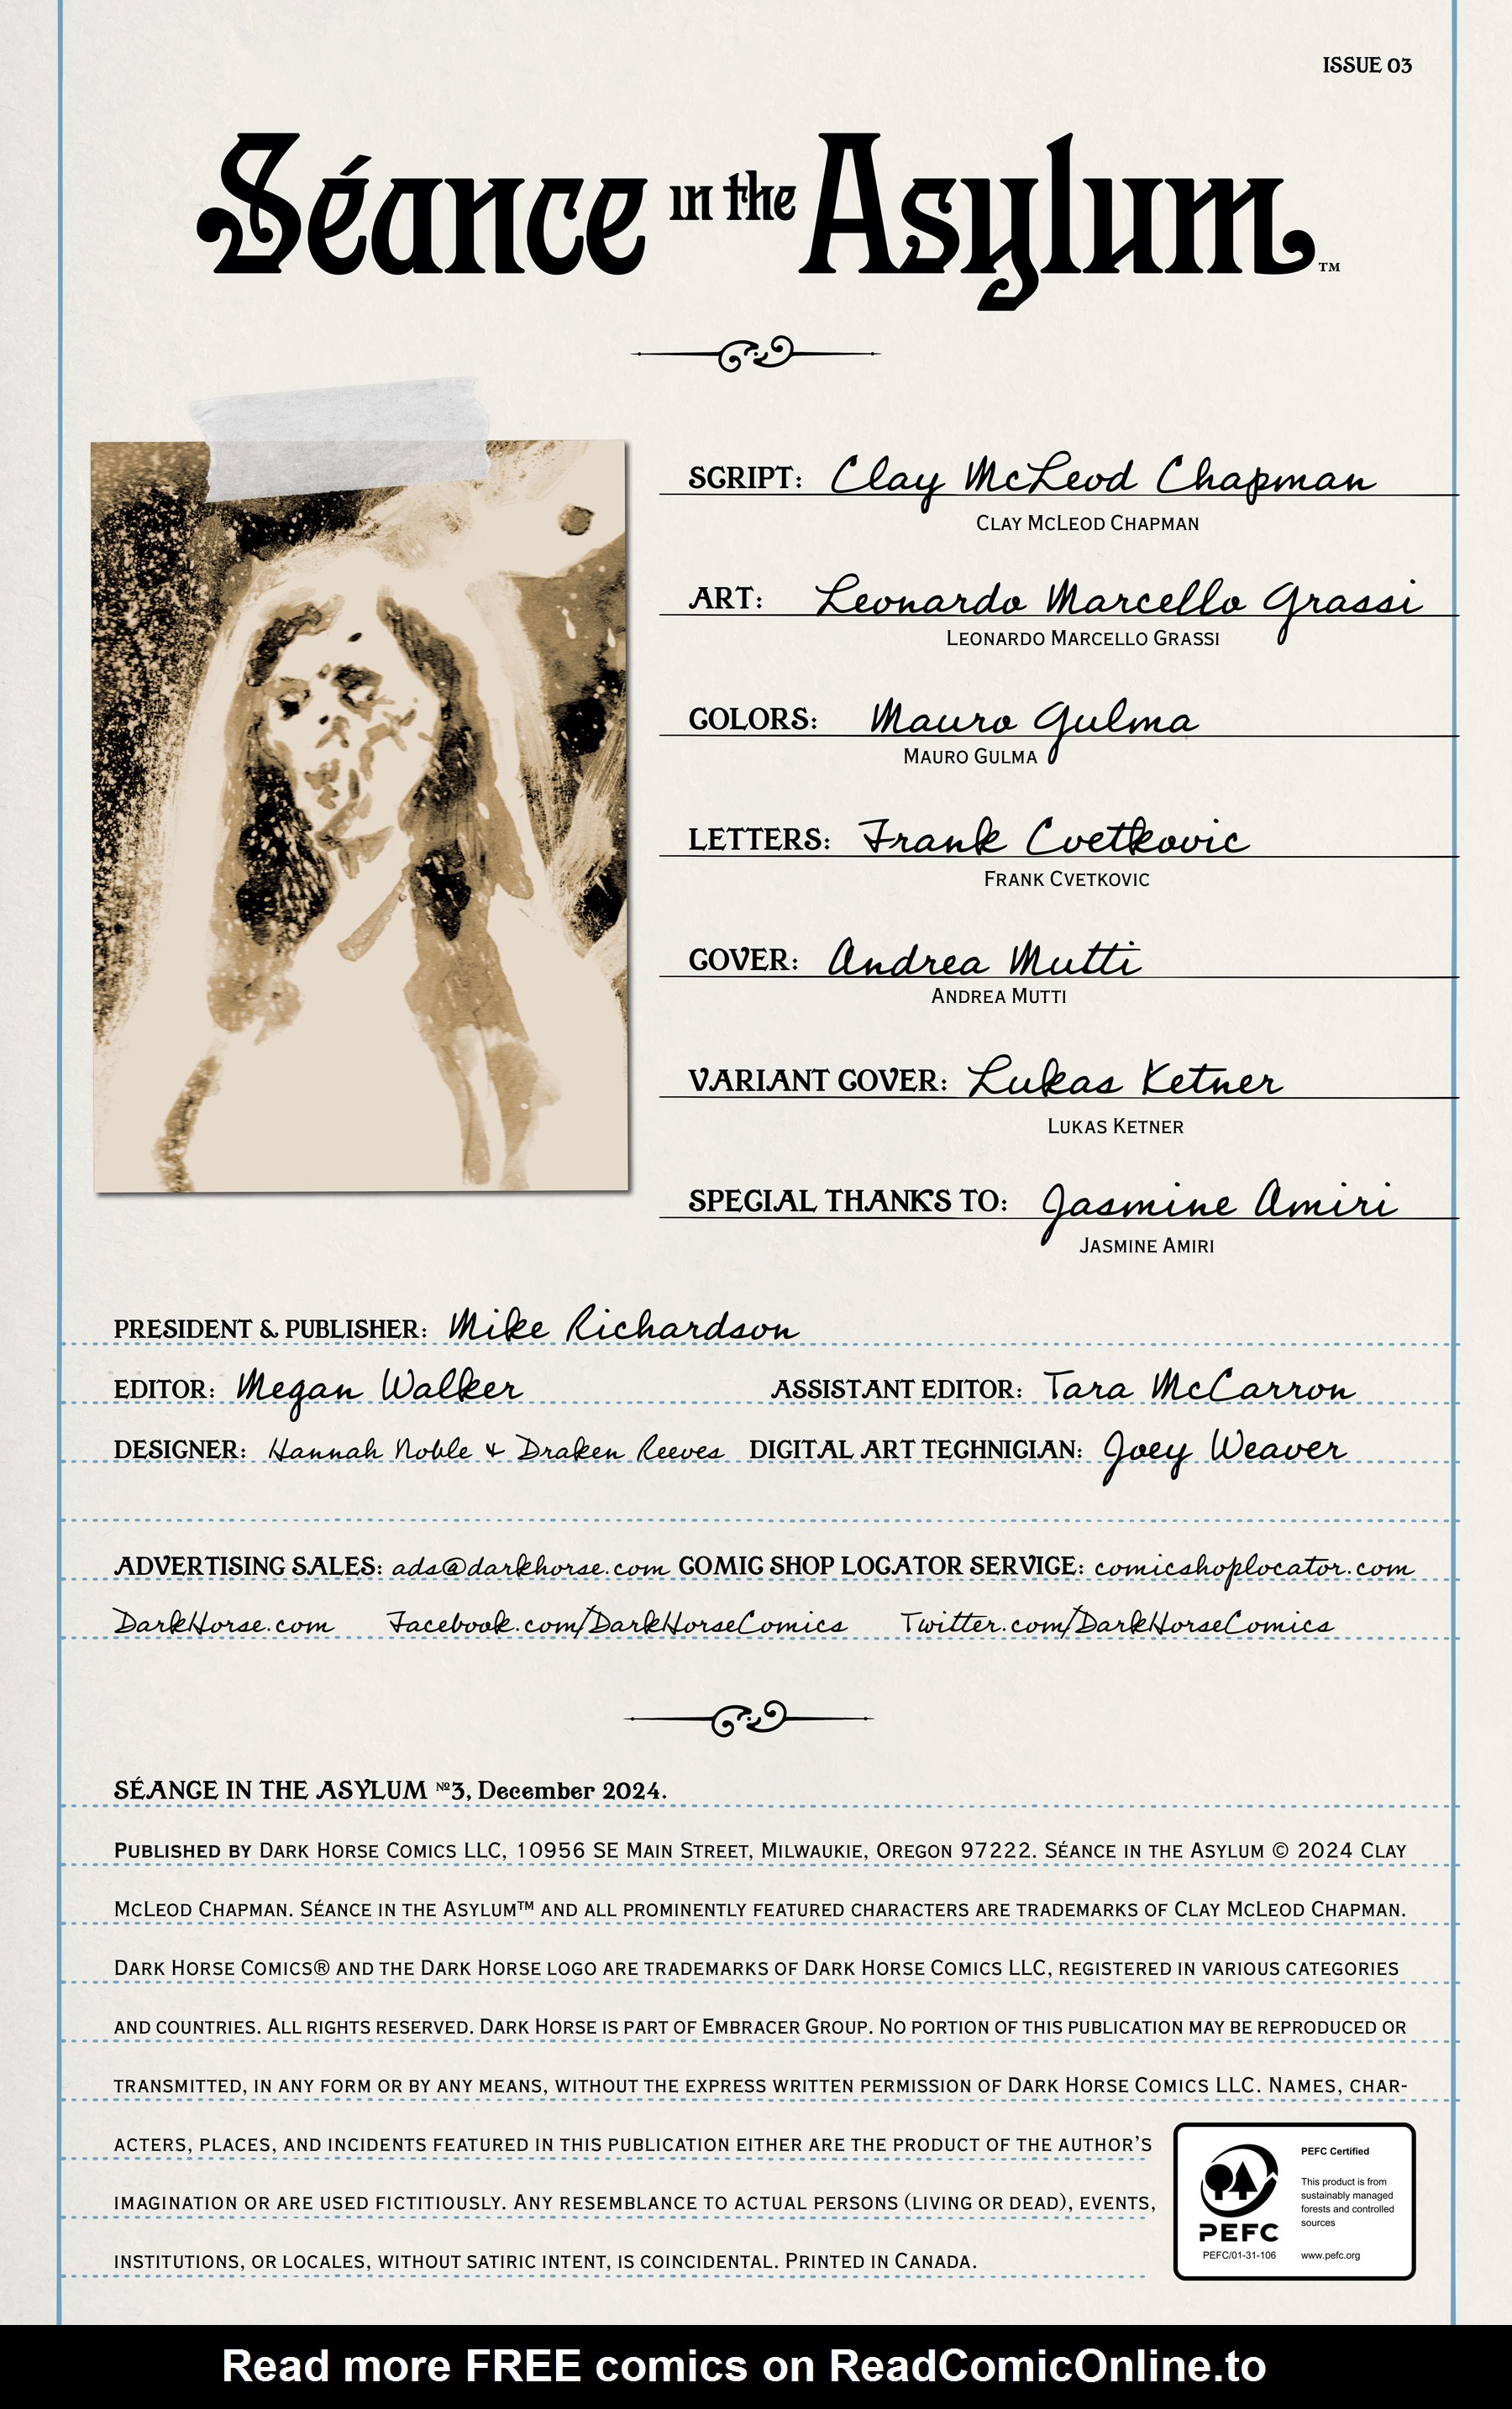 ISSUE 03
Séance in the Asylum™
SCRIPT: Clay McLeod Chapman
CLAY MCLEOD CHAPMAN
ART: Leonardo Marcello Grassi
LEONARDO MARCELLO GRASSI
COLORS: Mauro Gulma
MAURO GULMA
LETTERS: Frank Cvetkovic
FRANK CVETKOVIC
COVER: Andrea Mutti
ANDREA MUTTI
VARIANT COVER: Lukas Ketner
LUKAS KETNER
SPECIAL THANKS TO: Jasmine Amiri
JASMINE AMIRI
PRESIDENT & PUBLISHER: Mike Richardson
EDITOR: Megan Walker ASSISTANT EDITOR: Tara McCarron
DESIGNER: Hannah Noble & Draken Reeves DIGITAL ART TECHNICIAN: Joey Weaver
ADVERTISING SALES: ads@darkhorse.com COMIC SHOP LOCATOR SERVICE: comicshoplocator.com
DarkHorse.com Facebook.com/DarkHorseComics Twitter.com/DarkHorseComics
SÉANCE IN THE ASYLUM №3, December 2024.
PUBLISHED BY DARK HORSE COMICS LLC, 10956 SE MAIN STREET, MILWAUKIE, OREGON 97222. SÉANCE IN THE ASYLUM © 2024 CLAY
MCLEOD CHAPMAN. SÉANCE IN THE ASYLUM™ AND ALL PROMINENTLY FEATURED CHARACTERS ARE TRADEMARKS OF CLAY MCLEOD CHAPMAN.
DARK HORSE COMICS® AND THE DARK HORSE LOGO ARE TRADEMARKS OF DARK HORSE COMICS LLC, REGISTERED IN VARIOUS CATEGORIES
AND COUNTRIES. ALL RIGHTS RESERVED. DARK HORSE IS PART OF EMBRACER GROUP. NO PORTION OF THIS PUBLICATION MAY BE REPRODUCED OR
TRANSMITTED, IN ANY FORM OR BY ANY MEANS, WITHOUT THE EXPRESS WRITTEN PERMISSION OF DARK HORSE COMICS LLC. NAMES, CHAR-
ACTERS, PLACES, AND INCIDENTS FEATURED IN THIS PUBLICATION EITHER ARE THE PRODUCT OF THE AUTHOR'S
IMAGINATION OR ARE USED FICTITIOUSLY. ANY RESEMBLANCE TO ACTUAL PERSONS (LIVING OR DEAD), EVENTS,
INSTITUTIONS, OR LOCALES, WITHOUT SATIRIC INTENT, IS COINCIDENTAL. PRINTED IN CANADA.
PEFC
PEFC/01-31-106
PEFC Certified
This product is from
sustainably managed
forests and controlled
sources
www.pefc.org
Read more FREE comics on ReadComicOnline.to